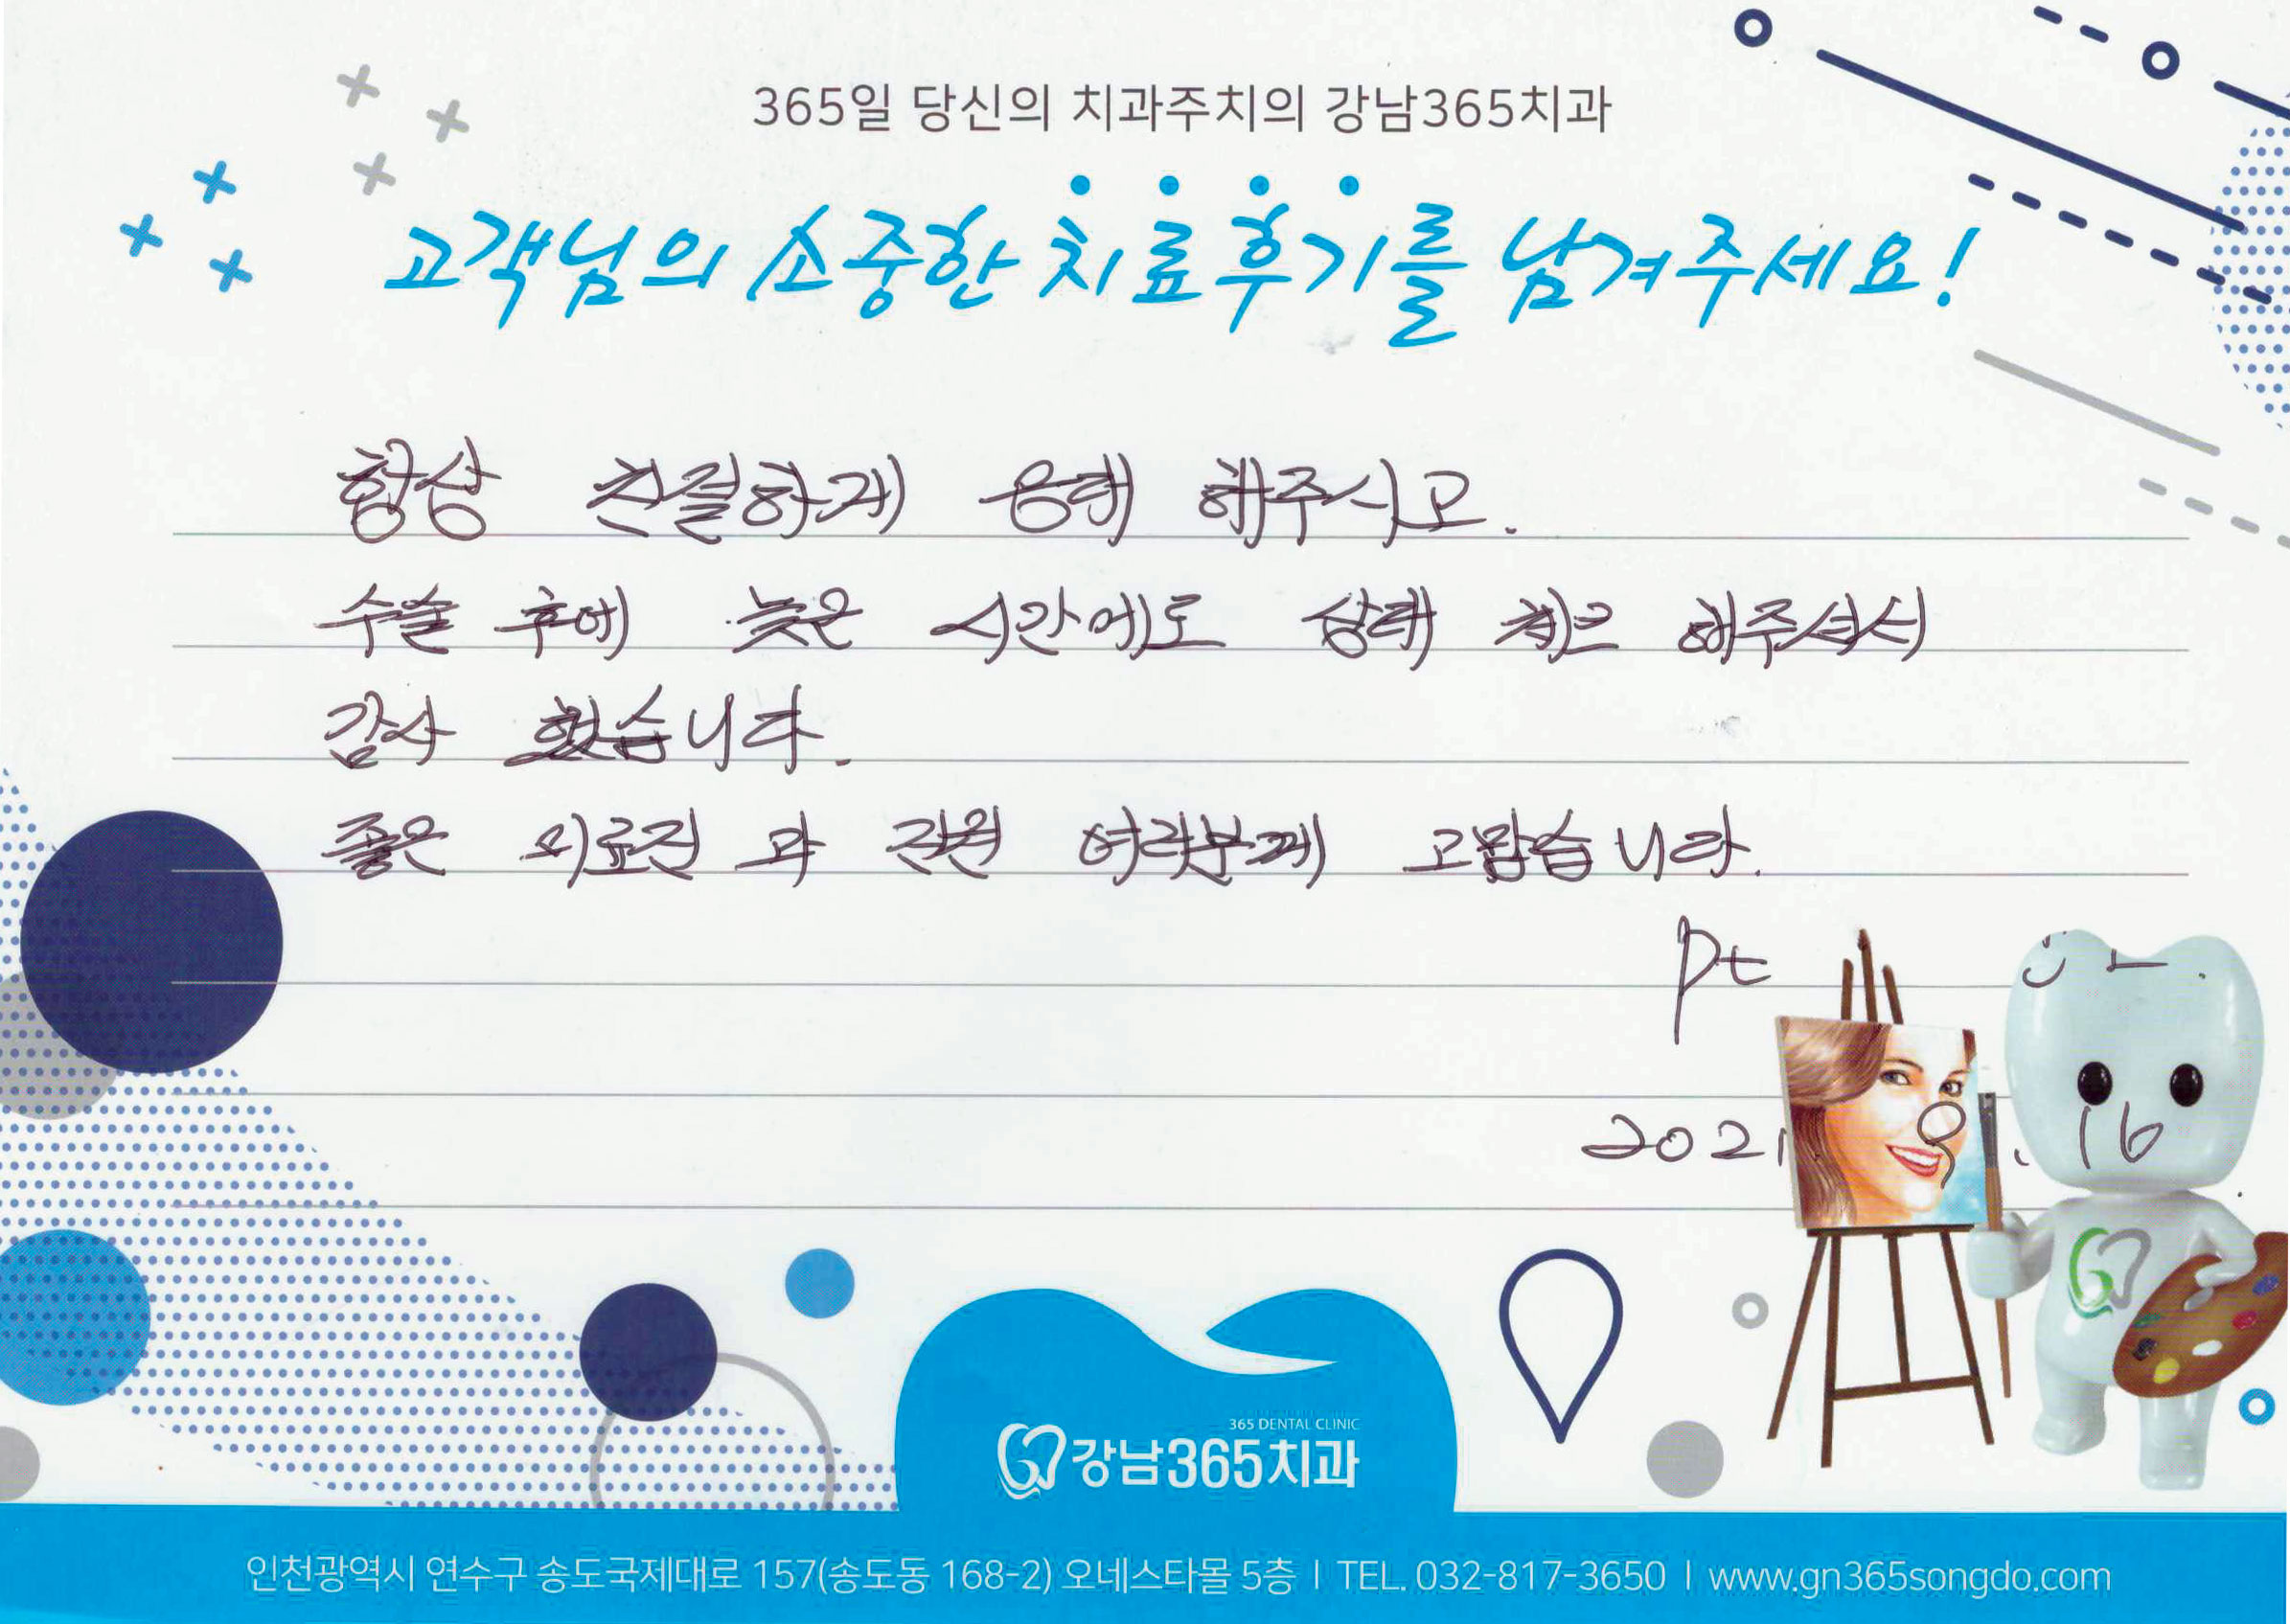 365일 당신의 치과주치의 강남365치과
고객님의 소중한 치료후기를 남겨주세요!
항상 친절하게 응대 해주시고.
수술 후에 늦은 시간에도 상태 체크 해주셔서
감사 했습니다.
좋은 의료진 과 직원 여러분께 고맙습니다.
Pt
2021. 9. 16
365 DENTAL CLINIC
강남365치과
인천광역시 연수구 송도국제대로 157(송도동 168-2) 오네스타몰 5층 | TEL. 032-817-3650 | www.gn365songdo.com